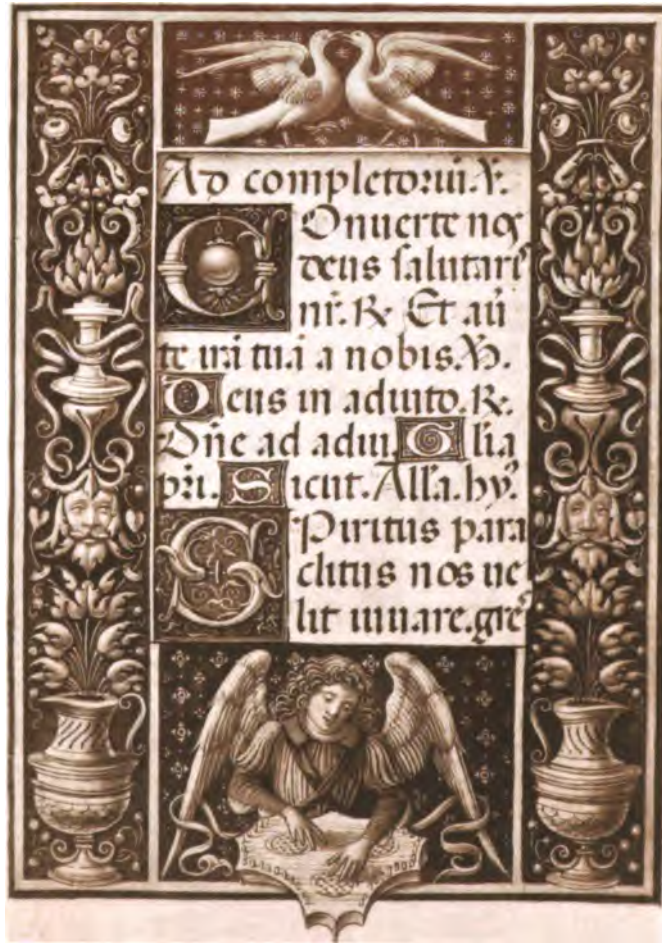 Ad completoriũ. ℣.
COnuerte nos
deus salutaris
nr̃. ℟. Et auẽ
te irã tuã a nobis. ℣.
Deus in adiuto. ℟.
Dñe ad adiu. Glia
pr̃i. Sicut. Alla. hy.
SPiritus para
clitus nos ue
lit iuuare. gre